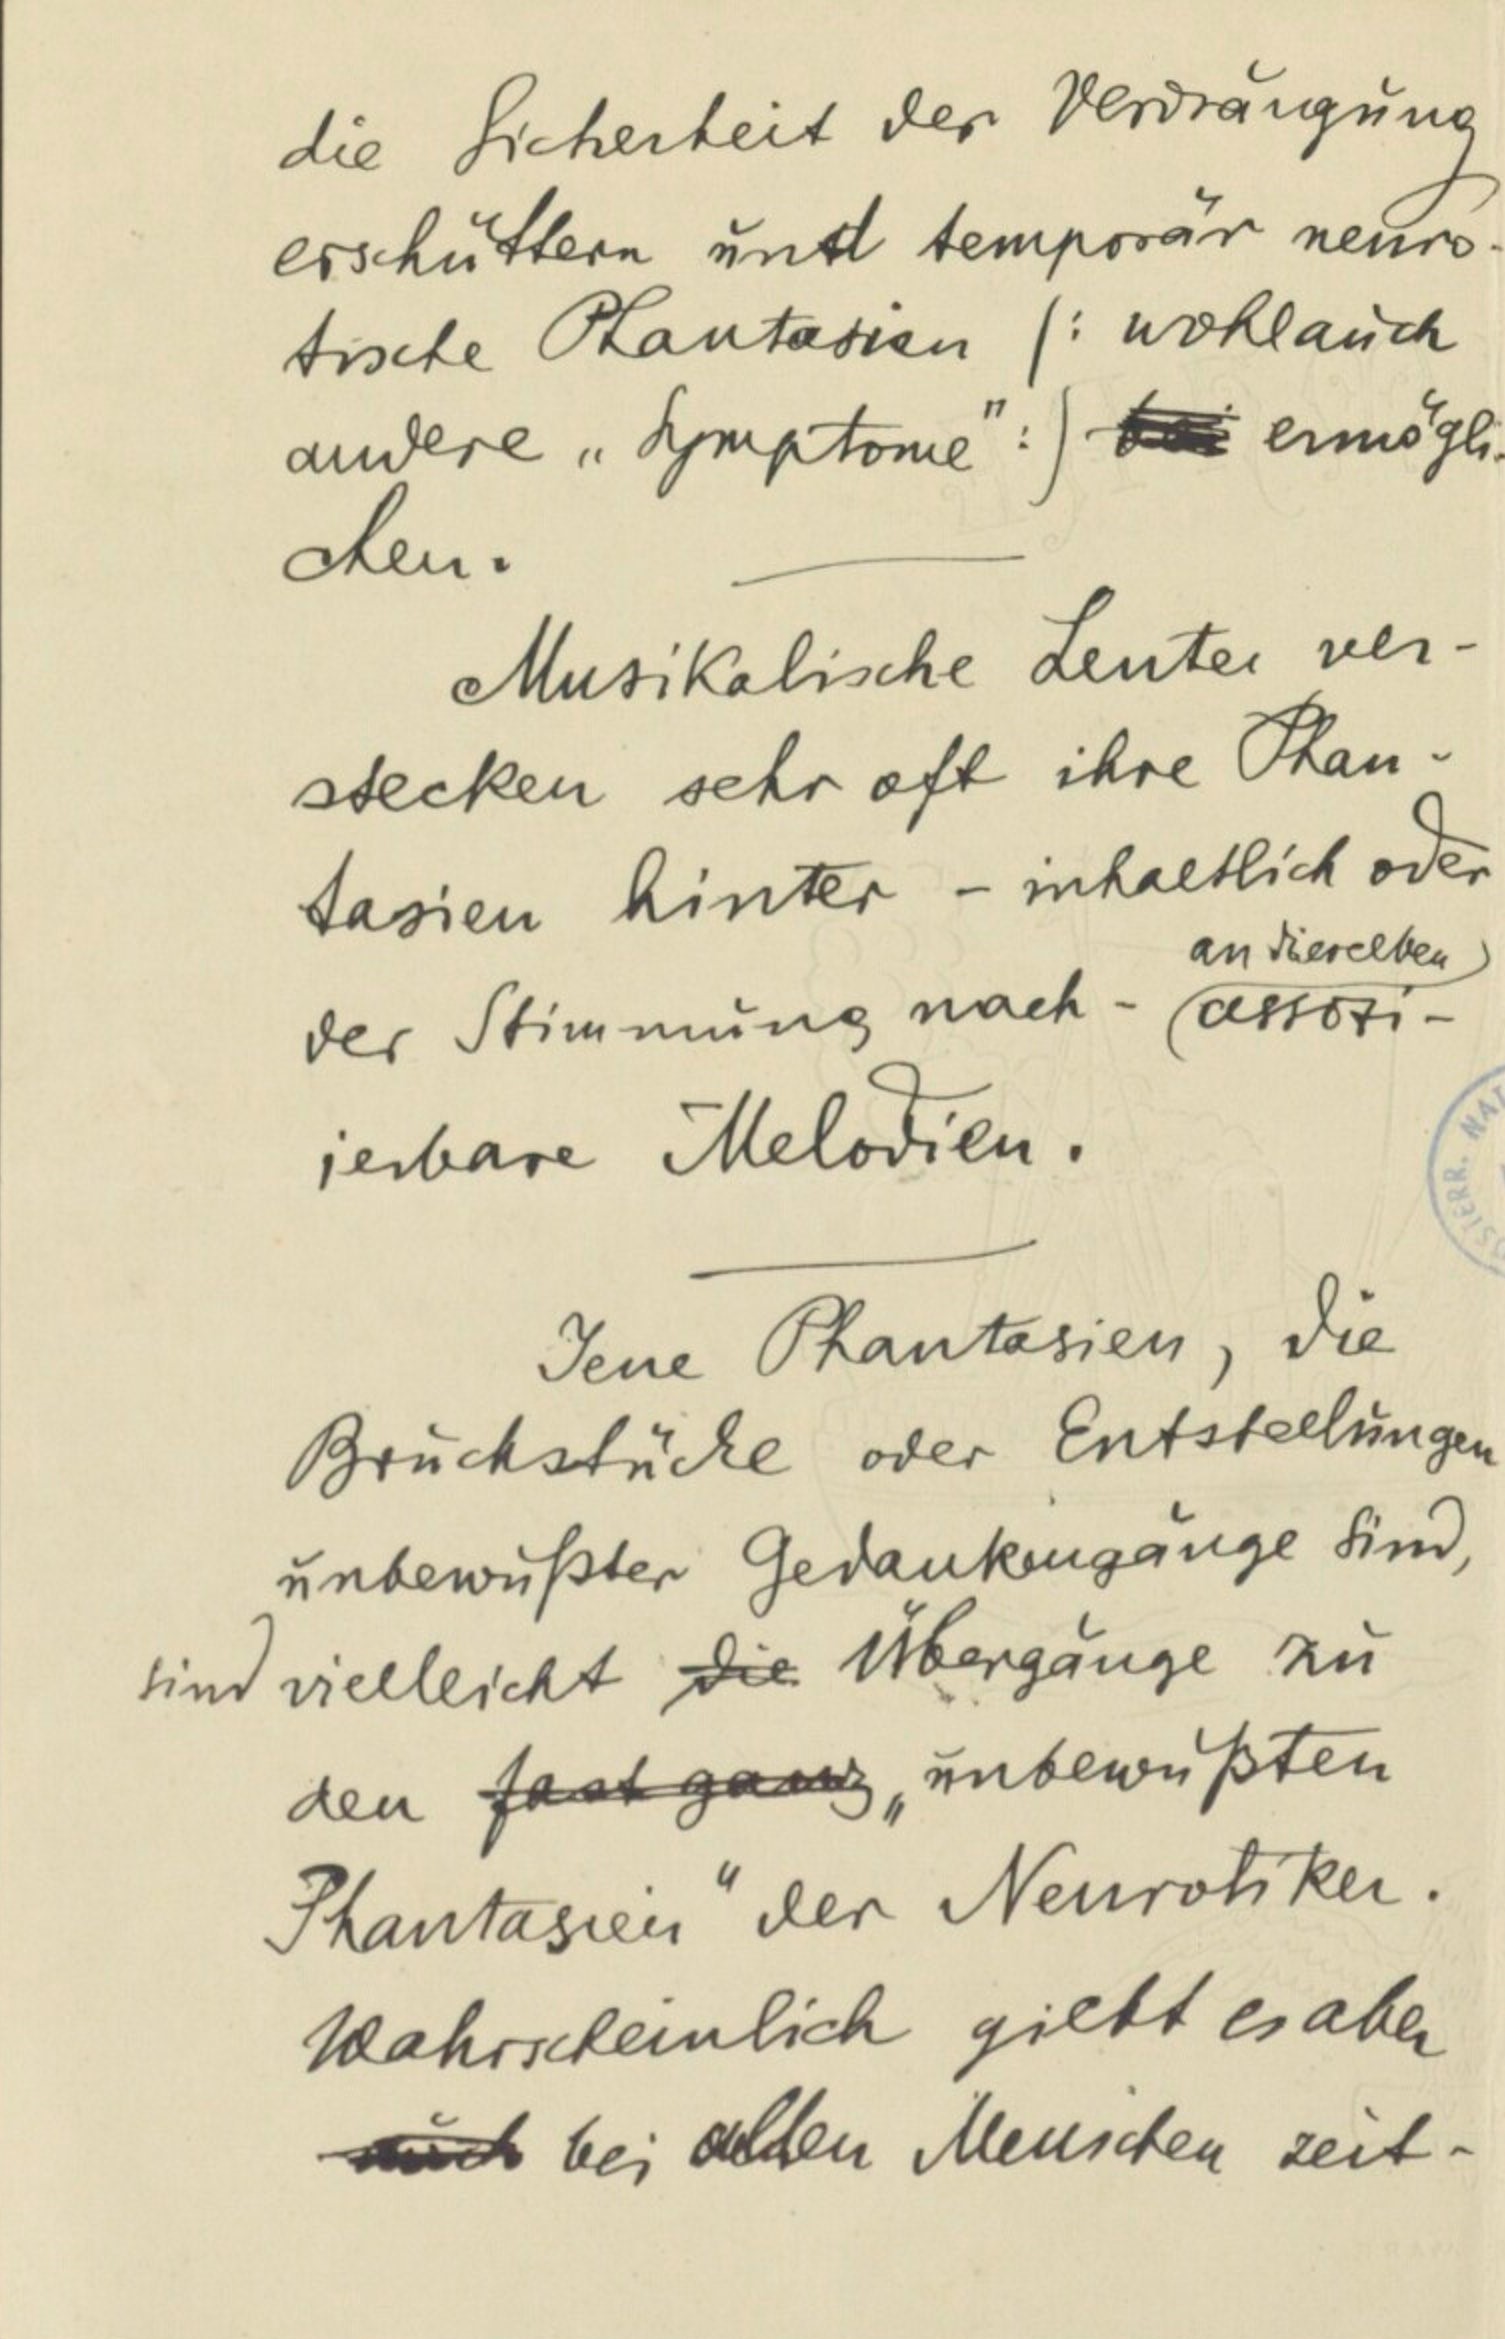 die Sicherheit der Verdrängung
erschüttern und temporär neuro-
tische Phantasien (: wohlauch
andere „Symptome" :) bei ermögli-
chen.
Musikalische Leute ver-
stecken sehr oft ihre Phan-
tasien hinter - inhaltlich oder
an dieselben
der Stimmung nach - assozi-
ierbare Melodien.
ÖSTERR. NAT
Jene Phantasien, die
Bruchstücke oder Entstellungen
unbewußter Gedankengänge sind,
sind vielleicht die Übergänge zu
den fast ganz „unbewußten
Phantasien" der Neurotiker.
Wahrscheinlich giebt es aber
auch bei allen Menschen zeit-